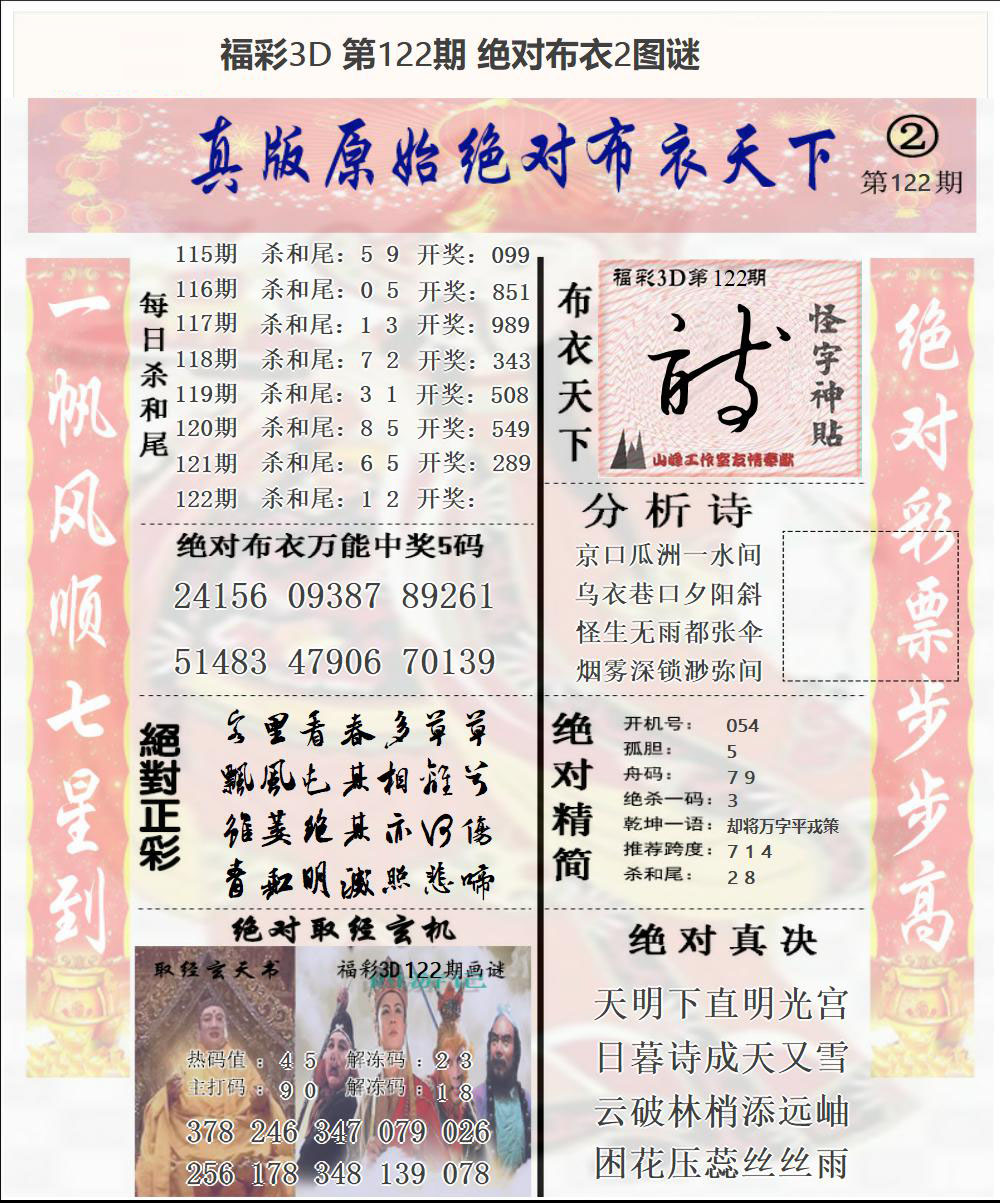 福彩3D 第122期 绝对布衣2图谜
真版原始绝对布衣天下
②
第122期
一帆风顺七星到
每日杀和尾
115期 杀和尾：5 9 开奖：099
116期 杀和尾：0 5 开奖：851
117期 杀和尾：1 3 开奖：989
118期 杀和尾：7 2 开奖：343
119期 杀和尾：3 1 开奖：508
120期 杀和尾：8 5 开奖：549
121期 杀和尾：6 5 开奖：289
122期 杀和尾：1 2 开奖：
绝对布衣万能中奖5码
24156 09387 89261
51483 47906 70139
絕對正彩
飄風
明滅照悲啼
绝对取经玄机
取经玄天书
福彩3D122期画谜
热码值：4 5 解冻码：2 3
主打码：9 0 解冻码：1 8
378 246 347 079 026
256 178 348 139 078
布衣天下
福彩3D第122期
怪字神贴
山峰工作室友情奉献
分析诗
京口瓜洲一水间
乌衣巷口夕阳斜
怪生无雨都张伞
烟雾深锁渺弥间
绝对精简
开机号：054
孤胆：5
舟码：7 9
绝杀一码：3
乾坤一语：却将万字平戎策
推荐跨度：7 1 4
杀和尾：2 8
绝对真决
天明下直明光宫
日暮诗成天又雪
云破林梢添远岫
困花压蕊丝丝雨
绝对彩票步步高